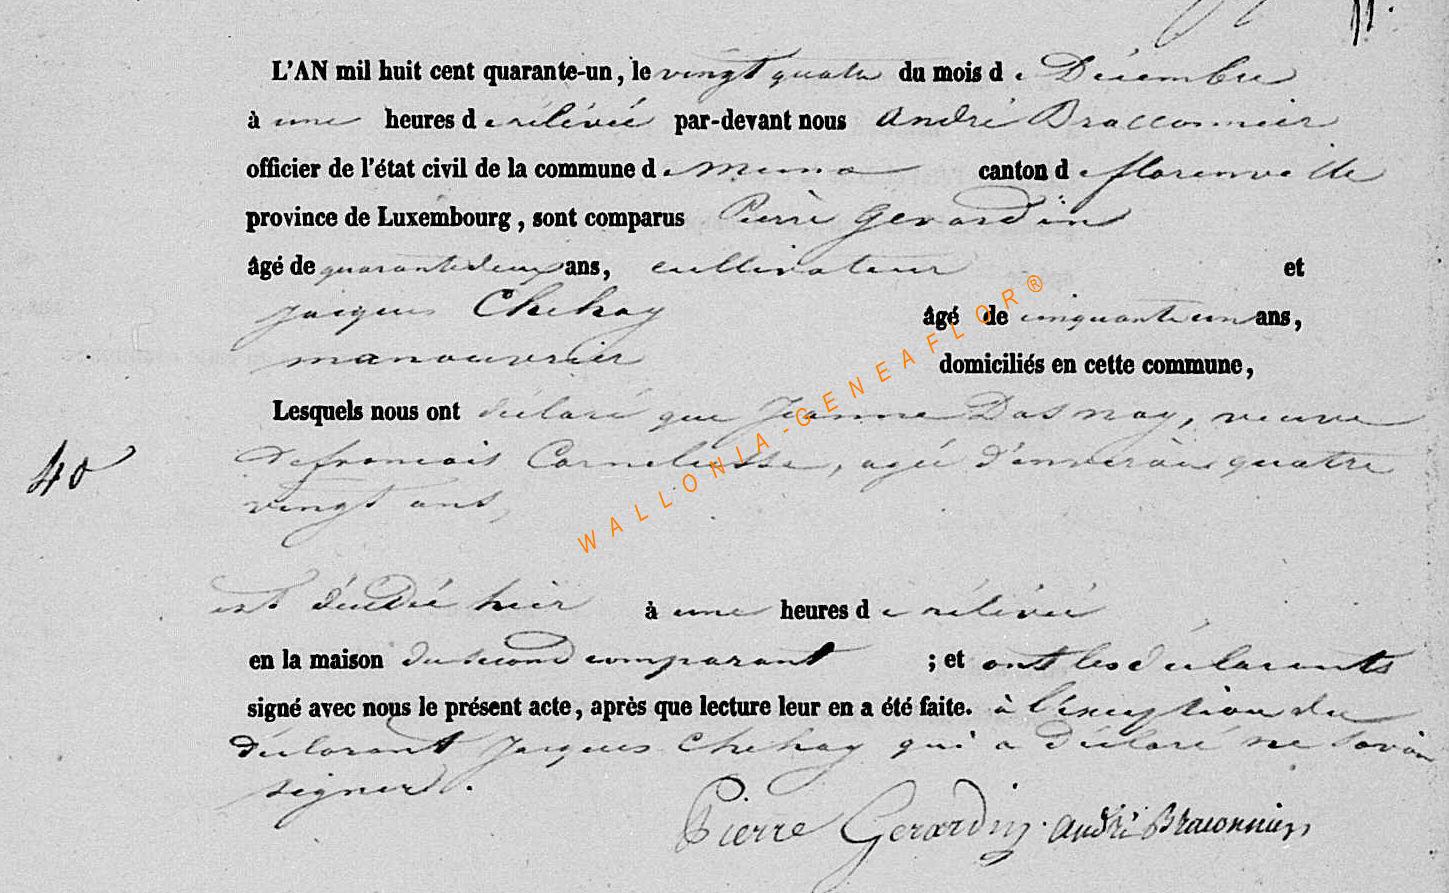 L'AN mil huit cent quarante-un, le vingt quatre du mois de Décembre
à une heures de rélévée par-devant nous André Braconnier
officier de l'état civil de la commune de Muno canton de florenville
province de Luxembourg, sont comparus Pierre Gerardin
âgé de quarante deux ans, cultivateur et
Jacques Chehay âgé de cinquante un ans,
manouvrier domiciliés en cette commune,
Lesquels nous ont déclaré que Jeanne Dasnoy, veuve
de francois Cornelisse, agée d'environ quatre
vingt ans,
40
est décédée hier à une heures de rélévée
en la maison du second comparant ; et ont les déclarants
signé avec nous le présent acte, après que lecture leur en a été faite. à l'exception du
déclarant Jacques Chehay qui a déclaré ne savoir
signer.
Pierre Gerardin André Braconnier
WALLONIA-GENEAFLOR®